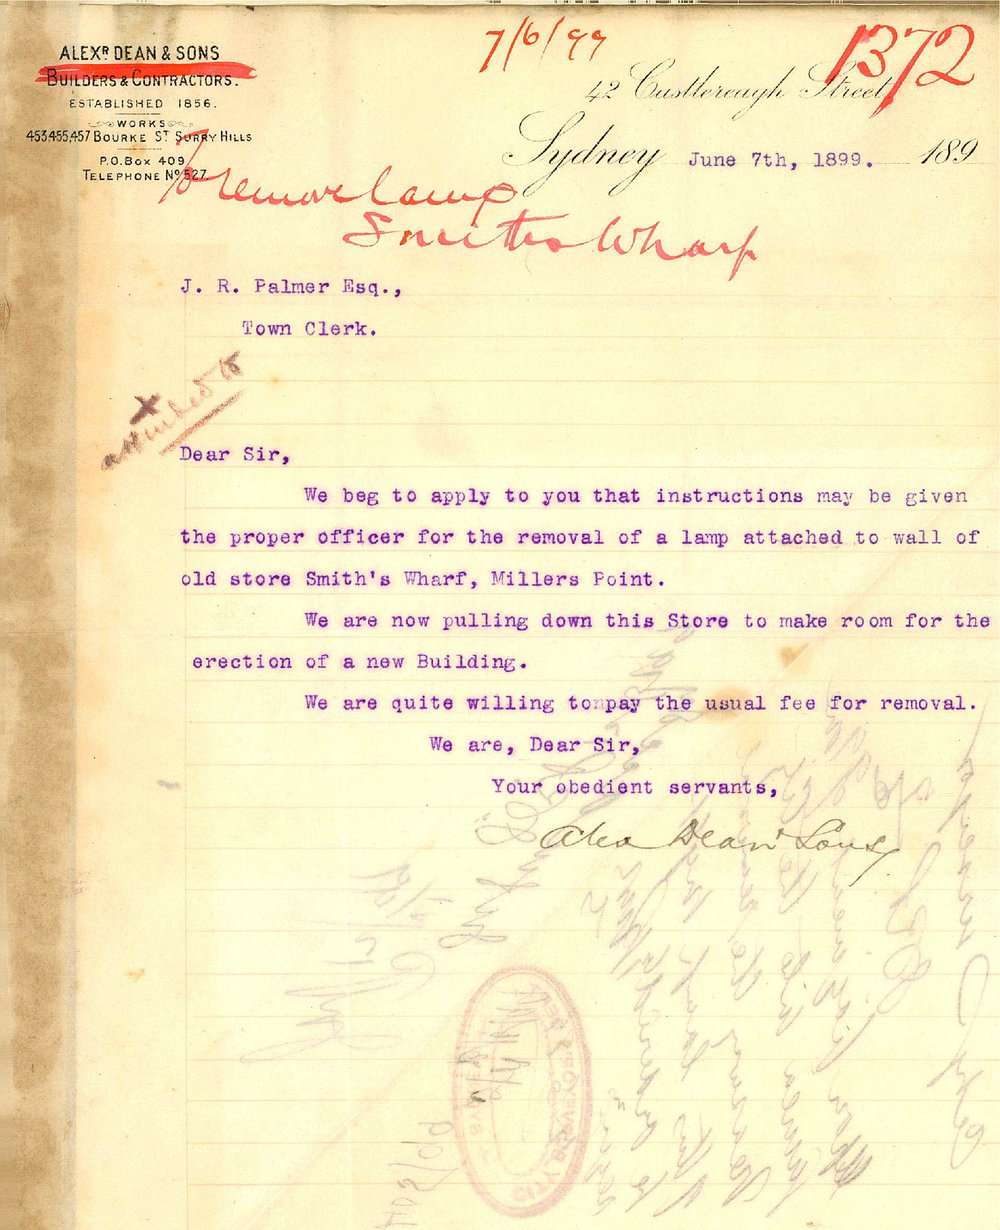 ALEXR DEAN & SONS
BUILDERS & CONTRACTORS.
ESTABLISHED 1856.
WORKS
453,455,457 BOURKE ST SURRY HILLS
P.O. BOX 409
TELEPHONE NO 527
7/6/99
1372
42 Castlereagh Street,
Sydney June 7th, 1899. 189
To remove lamp
Smiths Wharf
J. R. Palmer Esq.,
Town Clerk.
x
attended to
Dear Sir,
We beg to apply to you that instructions may be given
the proper officer for the removal of a lamp attached to wall of
old store Smith's Wharf, Millers Point.
We are now pulling down this Store to make room for the
erection of a new Building.
We are quite willing to pay the usual fee for removal.
We are, Dear Sir,
Your obedient servants,
Alex Dean & Sons